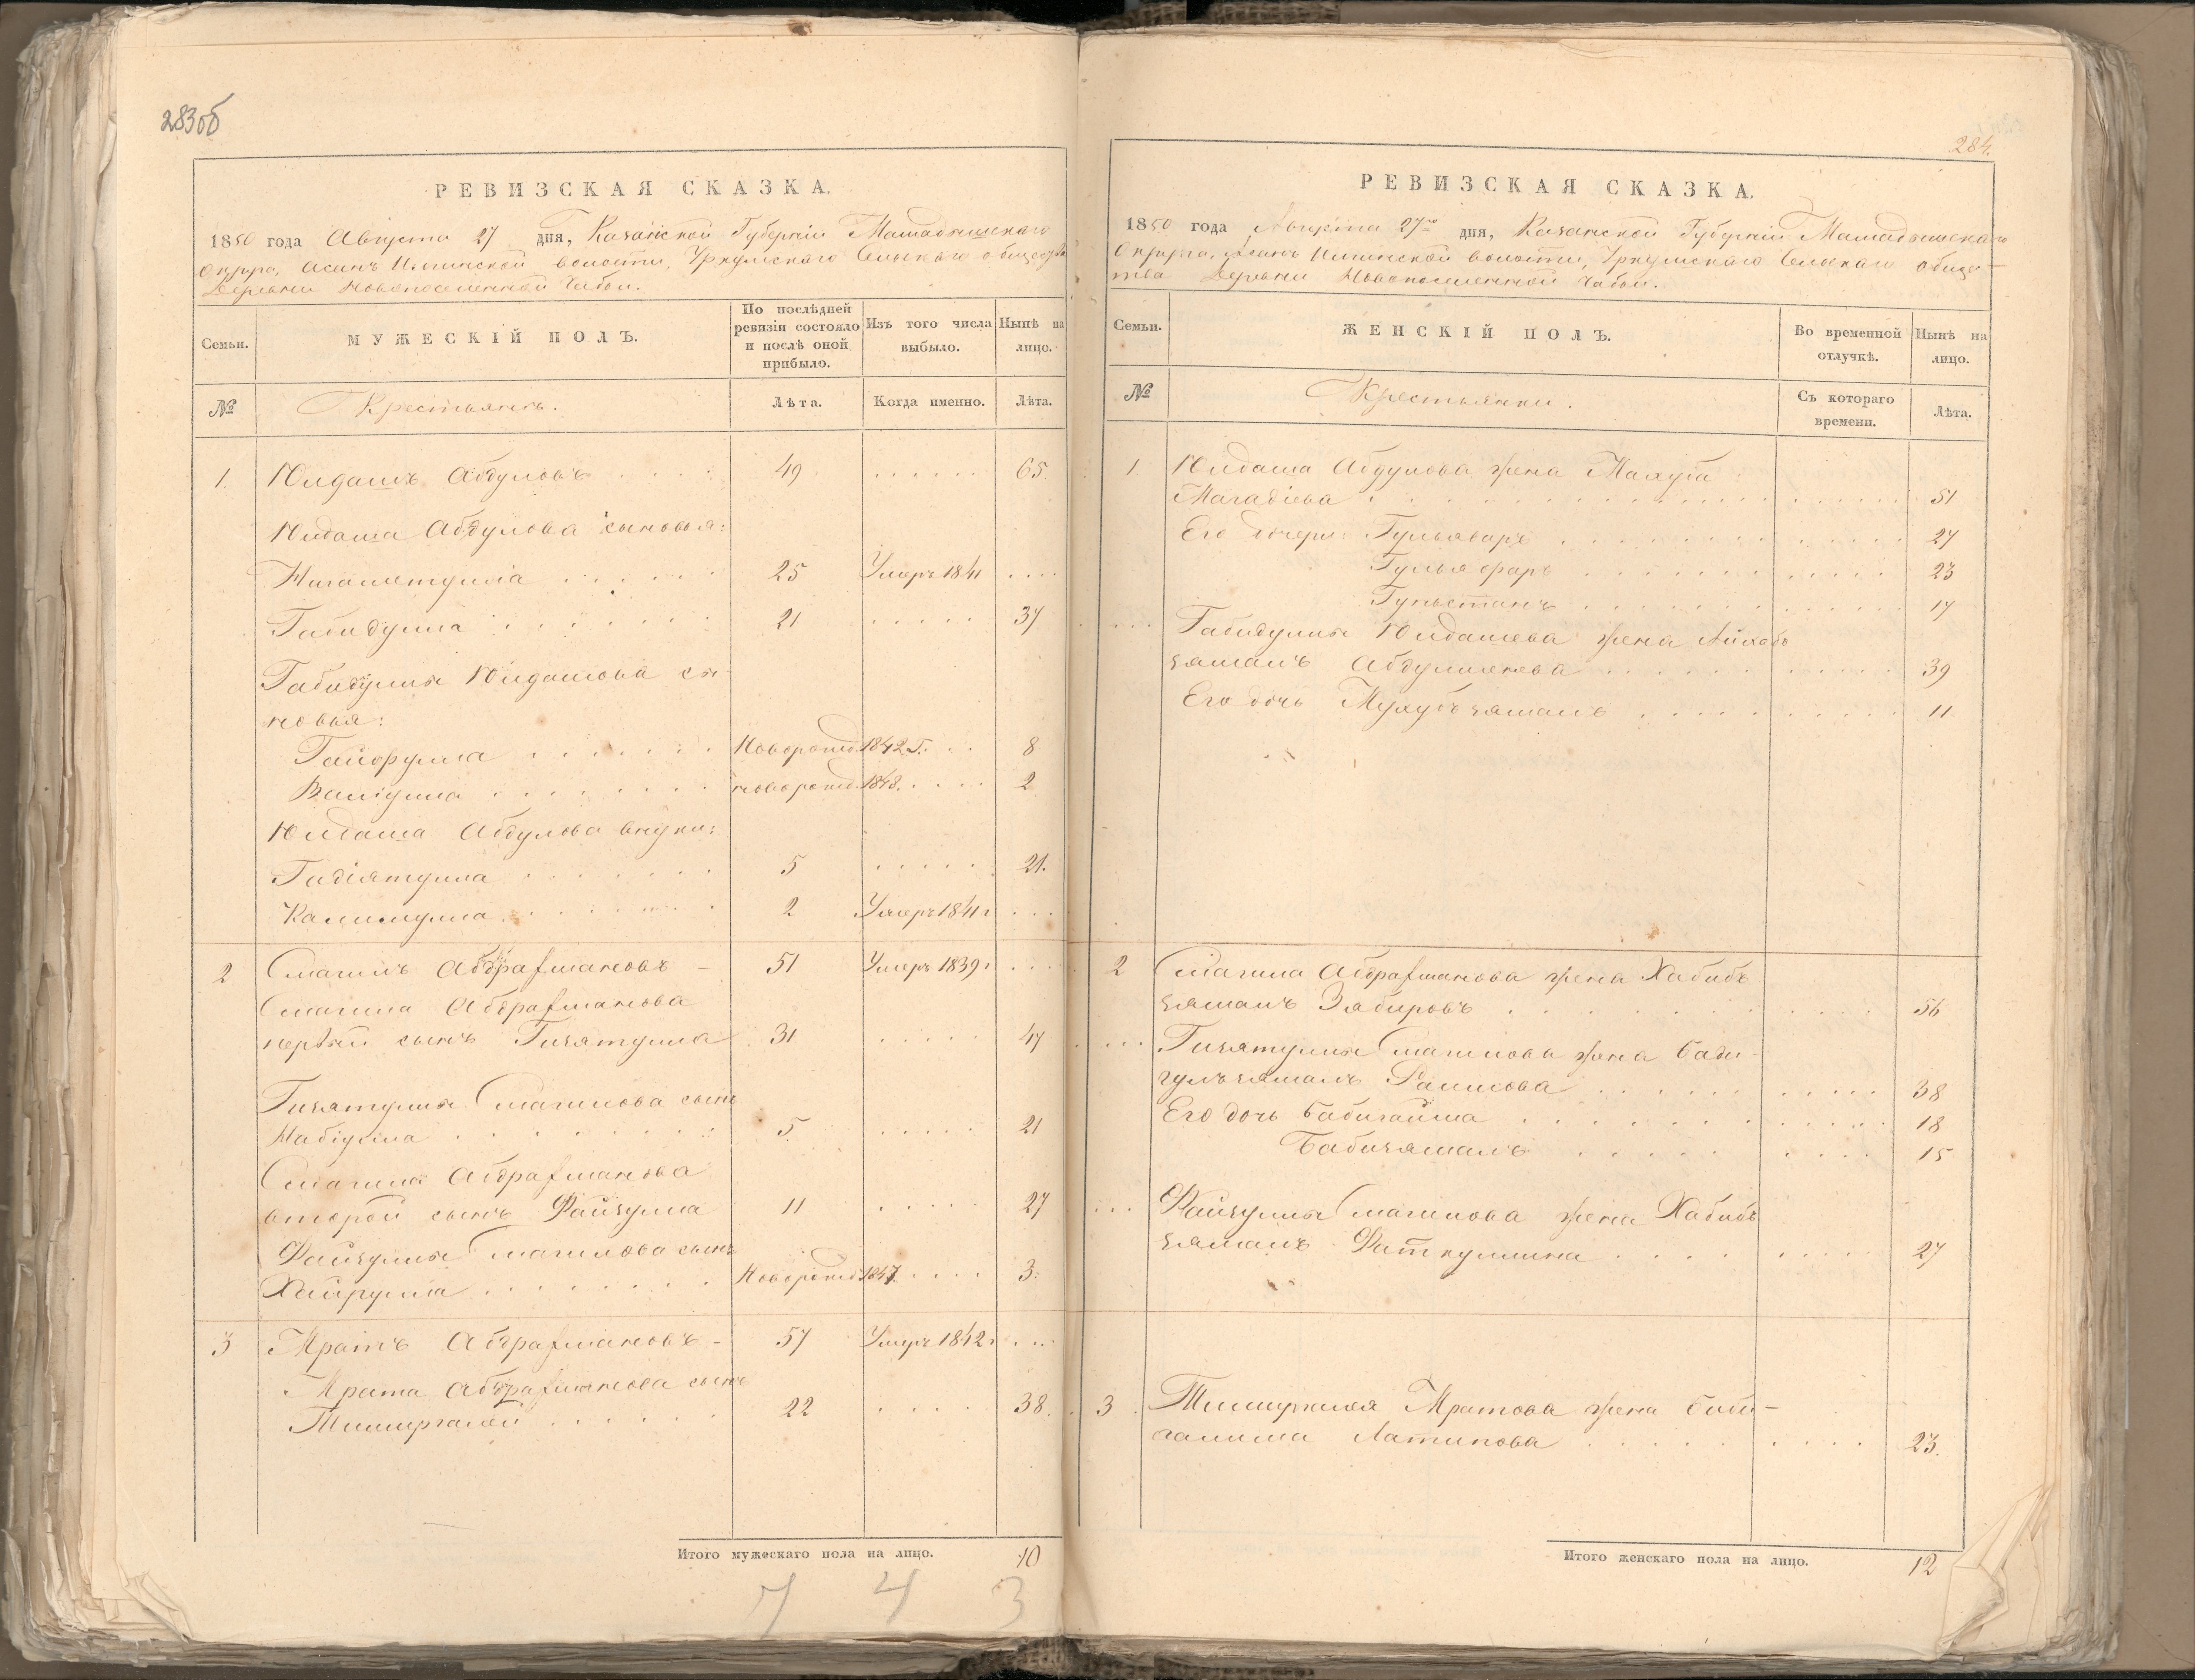 283об
РЕВИЗСКАЯ СКАЗКА.
1850 года Августа 27 дня, Казанской Губерніи Мамадышскаго
Округа, Асанъ Илгинской волости, Уркушскаго Сельскаго общества
Деревни Новопоселенной Чабьи.
Семьи.
МУЖЕСКІЙ ПОЛЪ.
По послѣдней ревизіи состояло и послѣ оной прибыло.
Изъ того числа выбыло.
Нынѣ на лицо.
№
Крестьянъ.
Лѣта.
Когда именно.
Лѣта.
1. Юлдашъ Абдуловъ 49 65
Юлдаша Абдулова сыновья:
Нигаметулла 25 Умеръ 1841
Габидулла 21 37
Габидуллы Юлдашова сы-
новья:
Гайфулла Новорожд. 1842 г. 8
Валіулла новорожд. 1848. 2
Юлдаша Абдулова внуки:
Гадіятулла 5 21.
Калимулла 2 Умеръ 1841 г
2 Смагилъ Абдрафмановъ 51 Умеръ 1839 г
Смагила Абдрафманова
первый сынъ Гизятулла 31 47
Гизятуллы Смагилова сынъ
Набіулла 5 21
Смагила Абдрафманова
второй сынъ Файзулла 11 27
Файзуллы Смагилова сынъ
Хайрулла Новорожд. 1847 3.
3 Мратъ Абдрафмановъ 57 Умеръ 1842 г
Мрата Абдрафманова сынъ
Тимиргалей 22 38.
Итого мужескаго пола на лицо. 10
7 4 3
284.
РЕВИЗСКАЯ СКАЗКА.
1850 года Августа 27го дня, Казанской Губерніи Мамадышскаго
Округа, Асанъ Илгинской волости, Уркушскаго Сельскаго общес-
тва Деревни Новопоселенной Чабьи.
Семьи.
ЖЕНСКІЙ ПОЛЪ.
Во временной отлучкѣ.
Нынѣ на лицо.
№
Крестьянки.
Съ котораго времени.
Лѣта.
1 Юлдаша Абдулова жена Махуба
Магадіева 51
Его дочери: Гульяваръ 27
Гульяфаръ 23
Гульстанъ 17
Габидуллы Юлдашева жена
зямалъ 39
Его дочь Мухубзямалъ 11
2 Смагила Абдрафманова жена Хабибъ
зямалъ Зябировъ 56
Гизятуллы Смагилова жена Бади
гулъзямалъ 38
Его дочь Бабигайша 18
Бабизямалъ 15
Файзуллы Смагилова жена Хабибъ
зямалъ Фаткуллина 27
3 Тимиргалея Мратова жена Биби-
галима Латипова 23.
Итого женскаго пола на лицо. 12